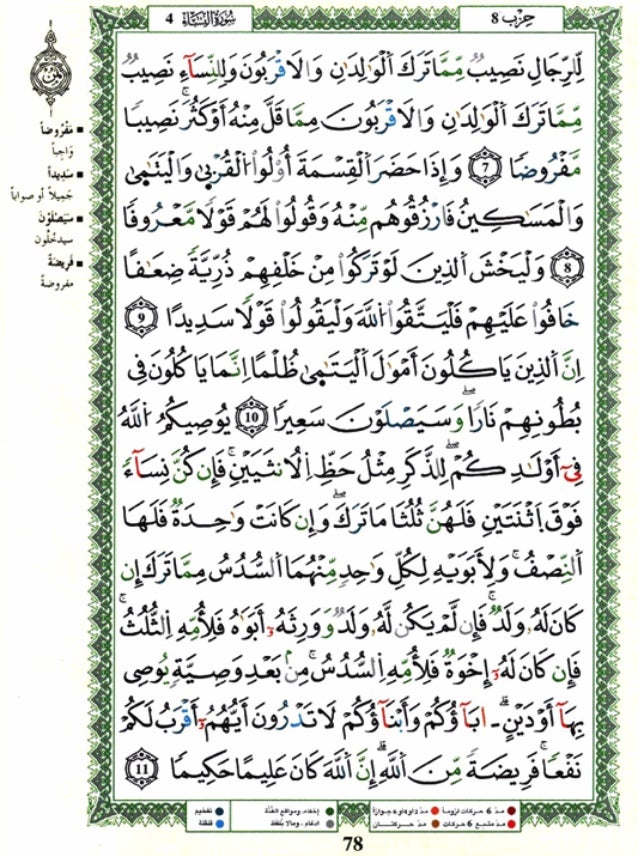 حِزْب 8
سُورَةُ النِّسَاءِ 4
لِّلرِّجَالِ نَصِيبٌ مِّمَّا تَرَكَ اَلْوَٰلِدَٰنِ وَالَاقْرَبُونَ وَلِلنِّسَآءِ نَصِيبٌ
مِّمَّا تَرَكَ اَلْوَٰلِدَٰنِ وَالَاقْرَبُونَ مِمَّا قَلَّ مِنْهُ أَوْ كَثُرَ نَصِيبًا
مَّفْرُوضًا 7 وَإِذَا حَضَرَ اَلْقِسْمَةَ أُوْلُواْ اُلْقُرْبىٰ وَالْيَتَٰمىٰ
وَالْمَسَٰكِينُ فَارْزُقُوهُم مِّنْهُ وَقُولُواْ لَهُمْ قَوْلًا مَّعْرُوفًا
8 وَلْيَخْشَ اَلذِينَ لَوْ تَرَكُواْ مِنْ خَلْفِهِمْ ذُرِّيَّةً ضِعَٰفًا
خَافُواْ عَلَيْهِمْ فَلْيَتَّقُواْ اُللَّهَ وَلْيَقُولُواْ قَوْلًا سَدِيدًا 9
اِنَّ اَلذِينَ يَاكُلُونَ أَمْوَٰلَ اَلْيَتَٰمىٰ ظُلْمًا اِنَّمَا يَاكُلُونَ فِى
بُطُونِهِمْ نَارًا وَسَيَصْلَوْنَ سَعِيرًا 10 يُوصِيكُمُ اُللَّهُ
فِىٓ أَوْلَٰدِكُمْ لِلذَّكَرِ مِثْلُ حَظِّ اِلُانثَيَيْنِ فَإِن كُنَّ نِسَآءً
فَوْقَ اَثْنَتَيْنِ فَلَهُنَّ ثُلُثَا مَا تَرَكَ وَإِن كَانَتْ وَٰحِدَةٌ فَلَهَا
اَلنِّصْفُ وَلِأَبَوَيْهِ لِكُلِّ وَٰحِدٍ مِّنْهُمَا اَلسُّدُسُ مِمَّا تَرَكَ إِن
كَانَ لَهُۥ وَلَدٌ فَإِن لَّمْ يَكُن لَّهُۥ وَلَدٌ وَوَرِثَهُۥٓ أَبَوَٰهُ فَلِأُمِّهِ اِلثُّلُثُ
فَإِن كَانَ لَهُۥٓ إِخْوَةٌ فَلِأُمِّهِ اِلسُّدُسُ مِنۢ بَعْدِ وَصِيَّةٍ يُوصِى
بِهَآ أَوْ دَيْنٍ ـ اٰبَآؤُكُمْ وَأَبْنَآؤُكُمْ لَا تَدْرُونَ أَيُّهُمُۥٓ أَقْرَبُ لَكُمْ
نَفْعًا فَرِيضَةً مِّنَ اَللَّهِ إِنَّ اَللَّهَ كَانَ عَلِيمًا حَكِيمًا 11
▪ مَفْرُوضاً
وَاجِباً
▪ سَدِيداً
جَمِيلاً أو صواباً
▪ سَيَصْلَوْنَ
سيدخُلون
▪ فَرِيضَةً
مفروضةً
مدّ 6 حركات لزوماً مدّ 2 أو 4 أو 6 جوازاً إخفاء، ومواقع الغُنَّة تفخيم
مدّ مشبع 6 حركات مدّ حركتان إدغام، وما لا يُلفظ قلقلة
78